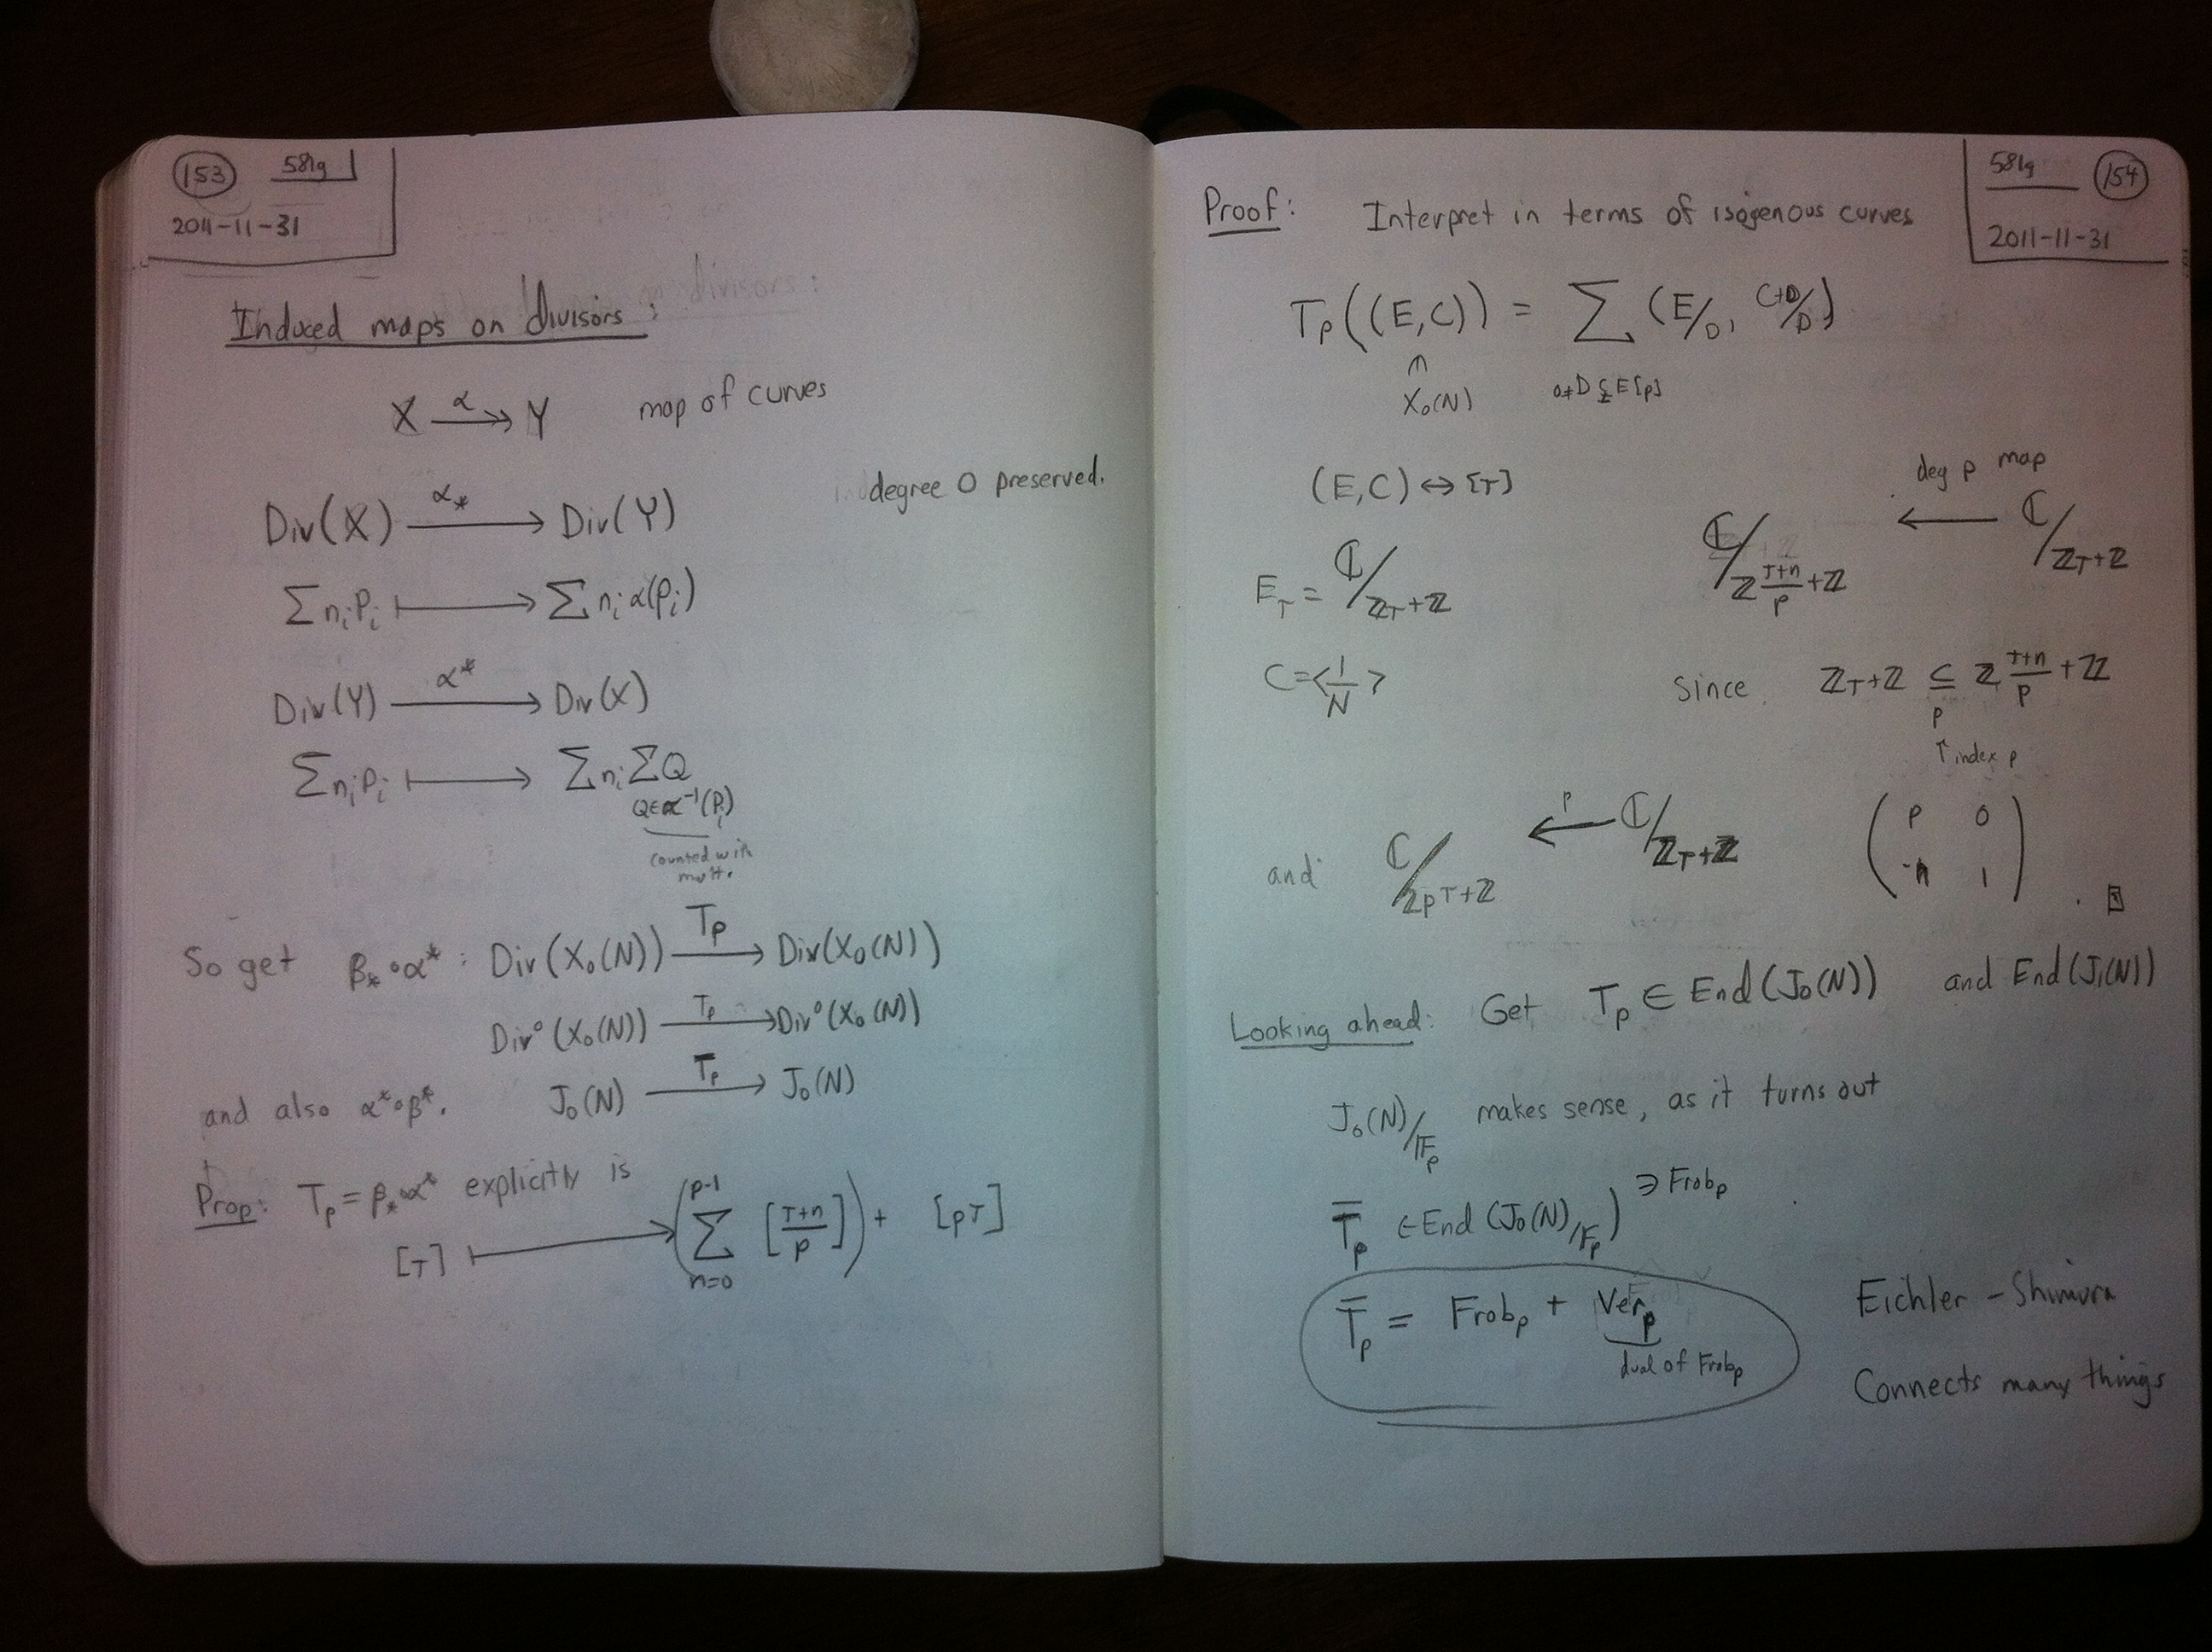 153 581g
2011-11-31
Induced maps on divisors:
X —α→→ Y map of curves
degree 0 preserved.
Div(X) —α_*→ Div(Y)
∑ n_i P_i ↦ ∑ n_i α(P_i)
Div(Y) —α^*→ Div(X)
∑ n_i P_i ↦ ∑ n_i ∑ Q
Q∈α^{-1}(P_i)
counted with
mult.
So get β_*∘α^* : Div(X_0(N)) —T_p→ Div(X_0(N))
Div^0(X_0(N)) —T_p→ Div^0(X_0(N))
and also α^*∘β^*. J_0(N) —T_p→ J_0(N)
Prop: T_p = β_*∘α^* explicitly is
[τ] ↦ (∑_{n=0}^{p-1} [(τ+n)/p]) + [pτ]
581g 154
2011-11-31
Proof: Interpret in terms of isogenous curves
T_p((E,C)) = ∑ (E/D, C+D/D)
∩
X_0(N) 0≠D⊊E[p]
(E,C) ↔ [τ]
deg p map
E_τ = ℂ/ℤτ+ℤ ℂ/ℤ(τ+n)/p+ℤ ← ℂ/ℤτ+ℤ
C=<1/N> since ℤτ+ℤ ⊆ ℤ(τ+n)/p+ℤ
p
↑ index p
and ℂ/ℤpτ+ℤ ←p ℂ/ℤτ+ℤ (p 0
-n 1) . □
Looking ahead: Get T_p ∈ End(J_0(N)) and End(J_1(N))
J_0(N)/𝔽_p makes sense, as it turns out
T̄_p ∈ End(J_0(N)/𝔽_p) ∋ Frob_p
T̄_p = Frob_p + Ver_p Eichler-Shimura
dual of Frob_p
Connects many things